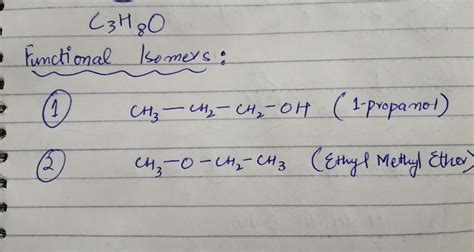 C₃H₈O
Functional Isomers :
① CH₃—CH₂—CH₂—OH (1-propanol)
② CH₃—O—CH₂—CH₃ (Ethyl Methyl Ether)